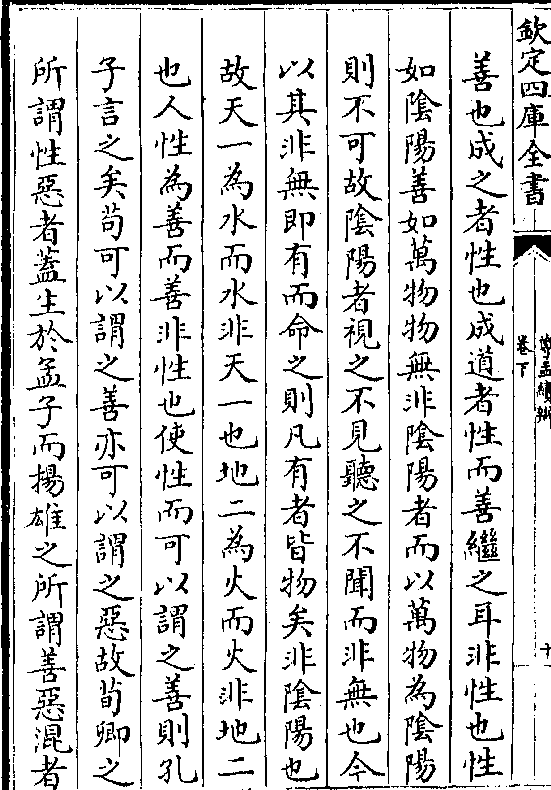 欽定四庫全書
尊孟續辨
卷下
十
善也成之者性也成道者性而善繼之耳非性也性
如陰陽善如萬物物無非陰陽者而以萬物為陰陽
則不可故陰陽者視之不見聽之不聞而非無也今
以其非無即有而命之則凡有者皆物矣非陰陽也
故天一為水而水非天一也地二為火而火非地二
也人性為善而善非性也使性而可以謂之善則孔
子言之矣苟可以謂之善亦可以謂之惡故荀卿之
所謂性惡者蓋生於孟子而揚雄之所謂善惡混者